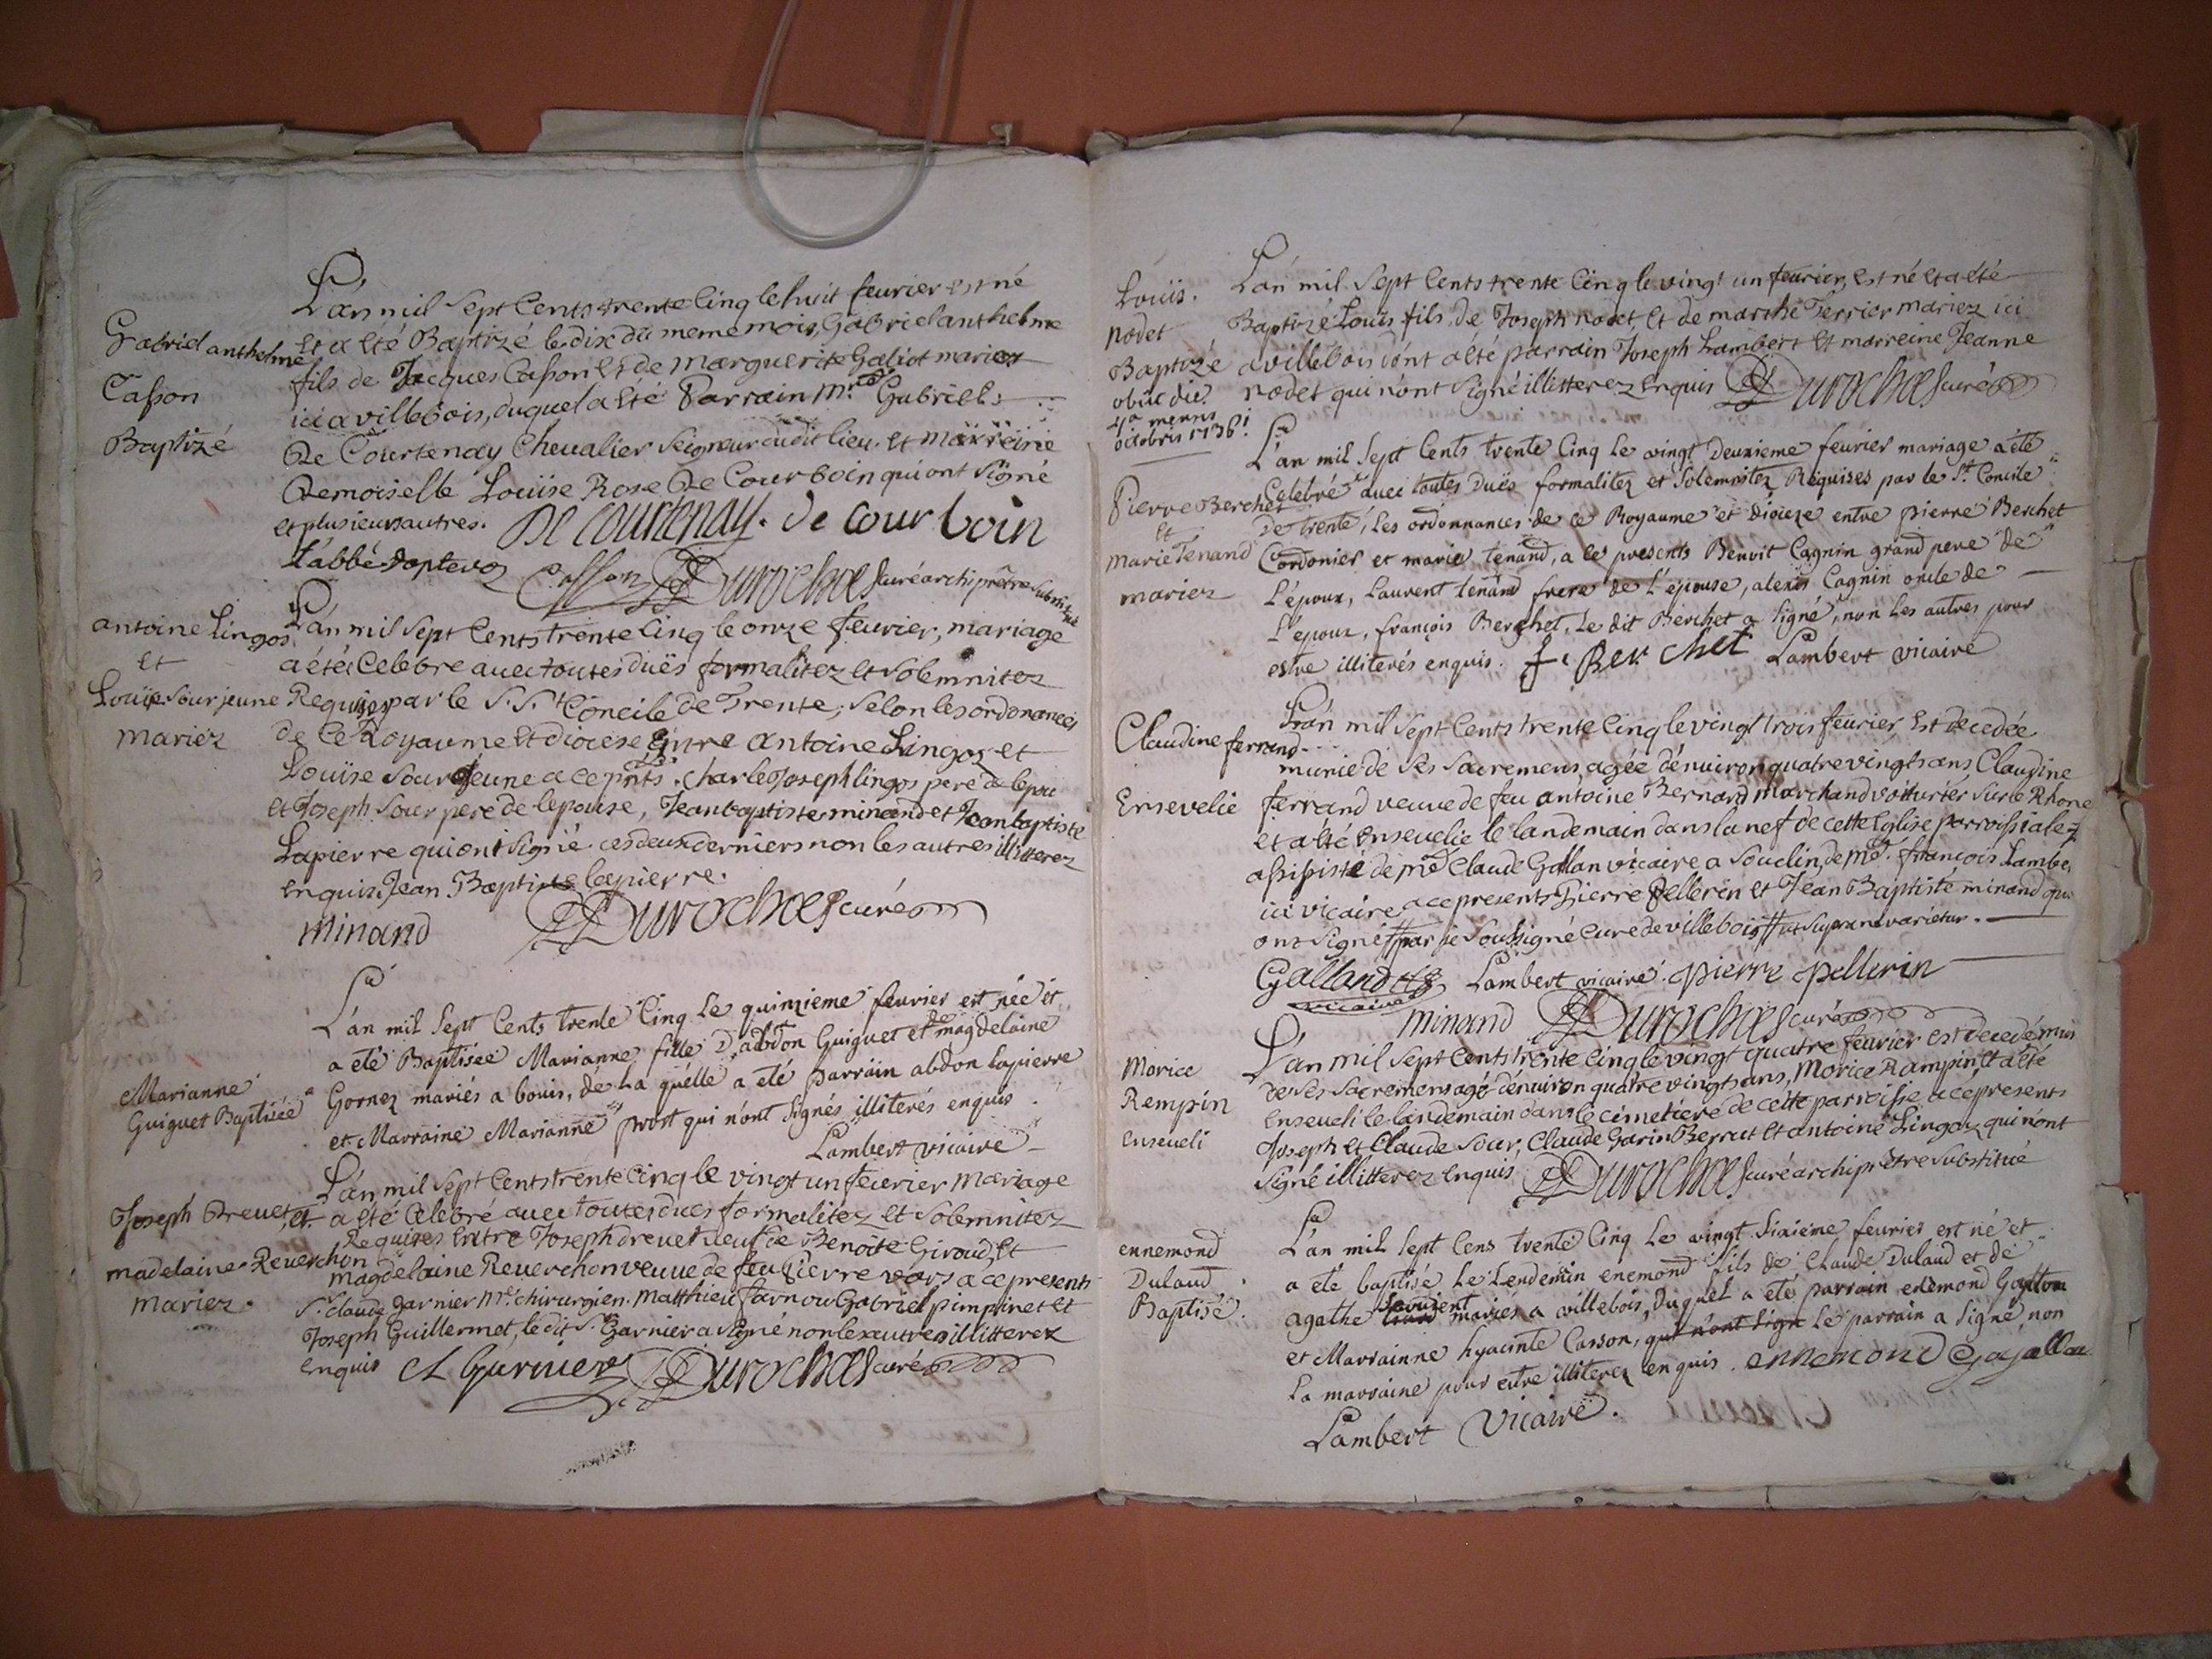 Gabriel anthelme
Casson
Baptizé
L'an mil sept Cents trente Cinq le huit feurier est né
et a été Baptizé le dix du meme mois, Gabriel anthelme
fils de Jacques Casson et de Marguerite Galiot mariez
ici a villebois, duquel a été Parrain Mre Gabriel
De Courtenay Chevalier Seigneur dudit lieu et marreine
Demoiselle Louïse Rose De Courboin qui ont signé
et plusieurs autres. De Courtenay. de Courboin
L'abbé
Casson Durochat curé archiprêtre substitué
antoine Lingos
et
Louïse Sour jeune
mariez
L'an mil sept Cents trente Cinq le onze feurier, mariage
a été Celebre auec toutes duës formalitez et solemnitez
Requises par le S.St Concile de Trente, selon les ordonances
de Ce Royaume et diocese Entre antoine Lingoz et
Louïse Sour Jeune a ce pnts. Charle Joseph lingos pere de lepou
et Joseph Sour pere de lepouse, Jean baptiste minand et Jean baptiste
Lapierre qui ont signé ces deux derniers non les autres illitterez
enquis. Jean Baptiste lapierre.
Minand Durochat curé
Marianne
Guiguet Baptisée
L'an mil sept Cents trente Cinq le quinzieme feurier est née et
a été Baptisée Marianne fille d'abdon Guiguet et de magdelaine
Gornez mariés a bouis, de La quelle a eté parrain abdon lapierre
et Marraine Marianne prost qui n'ont signés illiterés enquis
Lambert vicaire
Joseph Dreuet et
madelaine Reuerchon
mariez.
L'an mil sept Cents trente Cinq le vingt un feurier mariage
a été Celebré auec toutes dues formalitez et solemnitez
Requises Entre Joseph dreuet veuf de Benoite Giroud, et
magdelaine Reuerchon veuve de feu Pierre vors a ce presents
Sr. Claude garnier Me. chirurgien. Matthieu farnou Gabriel pimpinet et
Joseph Guillermet, le dit Sr. Garnier a signé non les autres illitterez
enquis Cl Garnier Durochat curé
Louïs.
nodet
Baptizé
obiit die
4a mensis
octobris 1736.
L'an mil sept Cents trente Cinq le vingt un feurier, est né et a été
Baptizé Louïs fils de Joseph nodet, et de marthe Terrier mariez ici
a villebois dont a été parrain Joseph Lambert et marreine Jeanne
nodet qui n'ont signé illitterez enquis Durochat curé
Pierre Berchet
et
Marie Tenand
mariez
L'an mil sept Cents trente Cinq Le vingt Deuxieme feurier mariage a été
Celebré auec toutes Duës formalitez et Solemnitez Requises par le St. Concile
De trente, Les ordonnances de ce Royaume et diocèze entre pierre Berchet
Cordonier et marie tenand, a ces presents Benoit Cagnin grand pere de
L'époux, Laurent tenand frere de L'épouse, alexis Cagnin oncle de
L'epoux, françois Berchet, Le dit Berchet a signé, non Les autres pour
estre illiterés enquis. f. Berchet Lambert vicaire
Claudine ferrand
Ensevelie
L'an mil sept Cents trente Cinq le vingt trois feurier, Est decedée
munie de ses sacremens agée d'enuiron quatre vingts ans Claudine
ferrand veuve de feu antoine Bernard marchand voiturier sur le Rhone
et a été Enseuelie le landemain dans la nef de cette Eglise parroissiale
assisté de mre Claude Gallan vicaire a Souclin, de mre. francois Lamber
ici vicaire, a ce presents Pierre Pellerin et Jean Baptiste minand qui
ont signé par je soussigné Curé de villebois ut supra ne varietur.
Galland
vicaire
Lambert vicaire. pierre pellerin
minand Durochat curé
Morice
Rempin
enseueli
L'an mil sept Cents trente Cinq le vingt quatre feurier est decedé muni
de ses sacremens agé d'enuiron quatre vingts ans, Morice Rampin, et a été
Enseueli le landemain dans le cimetiere de cette parroisse a ce presents
Joseph et Claude Sour, Claude Garin Berrut et antoine Lingoz qui n'ont
signé illitterez enquis Durochat curé archiprêtre substitué
ennemond
Dulaud
Baptisé.
L'an mil sept Cens trente Cinq Le vingt Sixieme feurier est né et
a eté baptisé Le Lendemin enemond fils de Claude Dulaud et de
agathe mariés a villebois, Duquel a eté parrain enemond
et Marrainne hyacinte Casson, qui n'ont signé Le parrain a signé, non
La marraine pour estre illiterez enquis. ennemond
Lambert Vicaire.